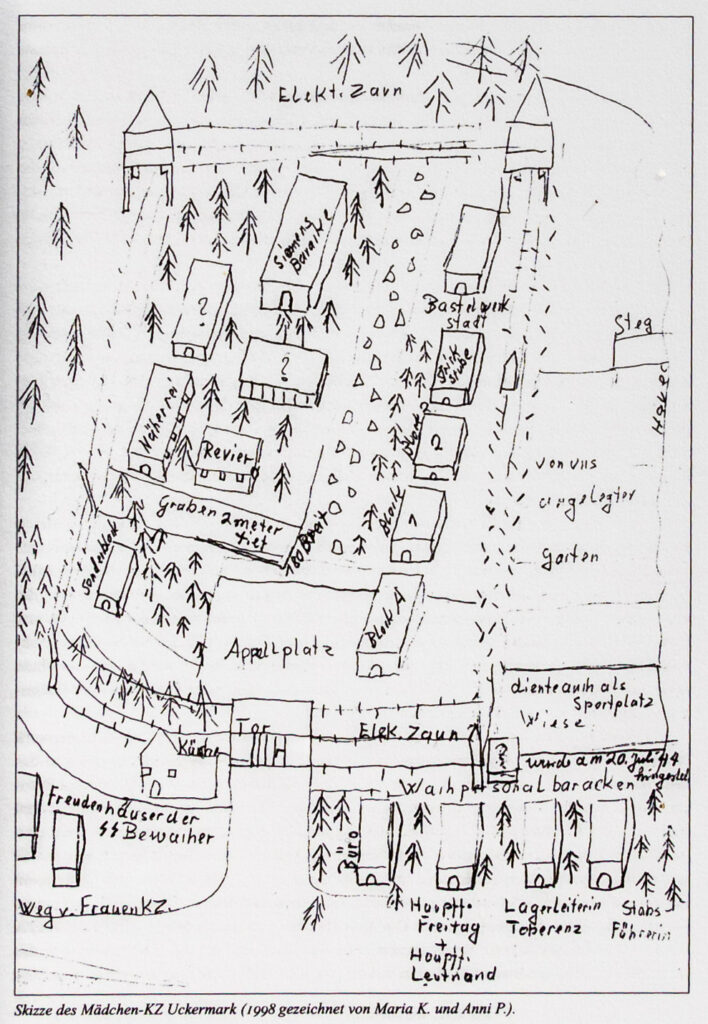 Elekt. Zaun
Siemens
Baracke
?
?
Bastelwerk
stadt
Strick
stube
Steg
Block 2
2
Nähernei
Revier
Block
1
von uns
angelegter
Garten
Graben 2 meter
tief
Sonderblock
Appellplatz
Block A
diente auch als
Sportplatz
Wiese
Tor
Küche
Elek. Zaun
wurde am 20. Juli 44
hingestel
Freudenhäuser der
SS Bewaiher
Waihpersonalbaracken
Büro
Weg v. Frauen KZ.
Hauptf.
Freitag
+
Hauptf.
Leutnand
Lagerleiterin
Toberenz
Stabs
Führerin
Skizze des Mädchen-KZ Uckermark (1998 gezeichnet von Maria K. und Anni P.).